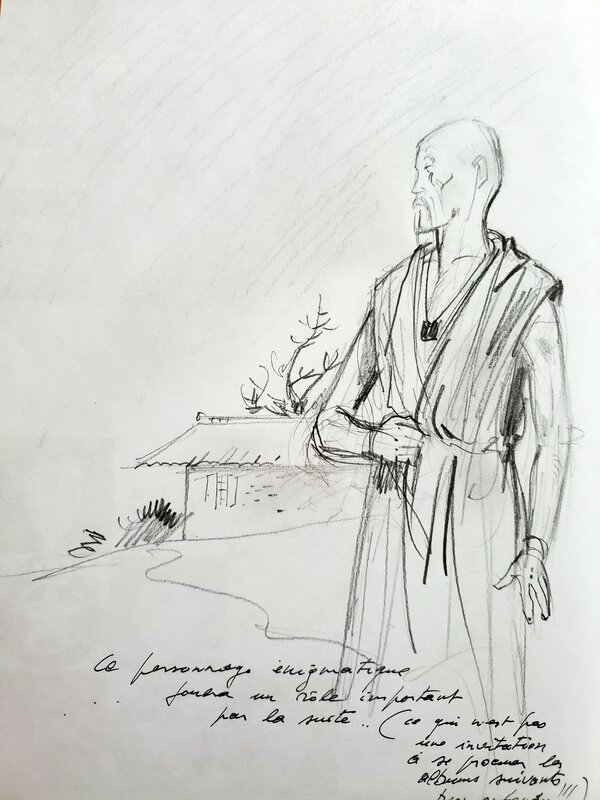 Ce personnage énigmatique
jouera un rôle important
par la suite.. (ce qui n'est pas
une invitation
à se procurer les
albums suivants
bien entendu !!!)